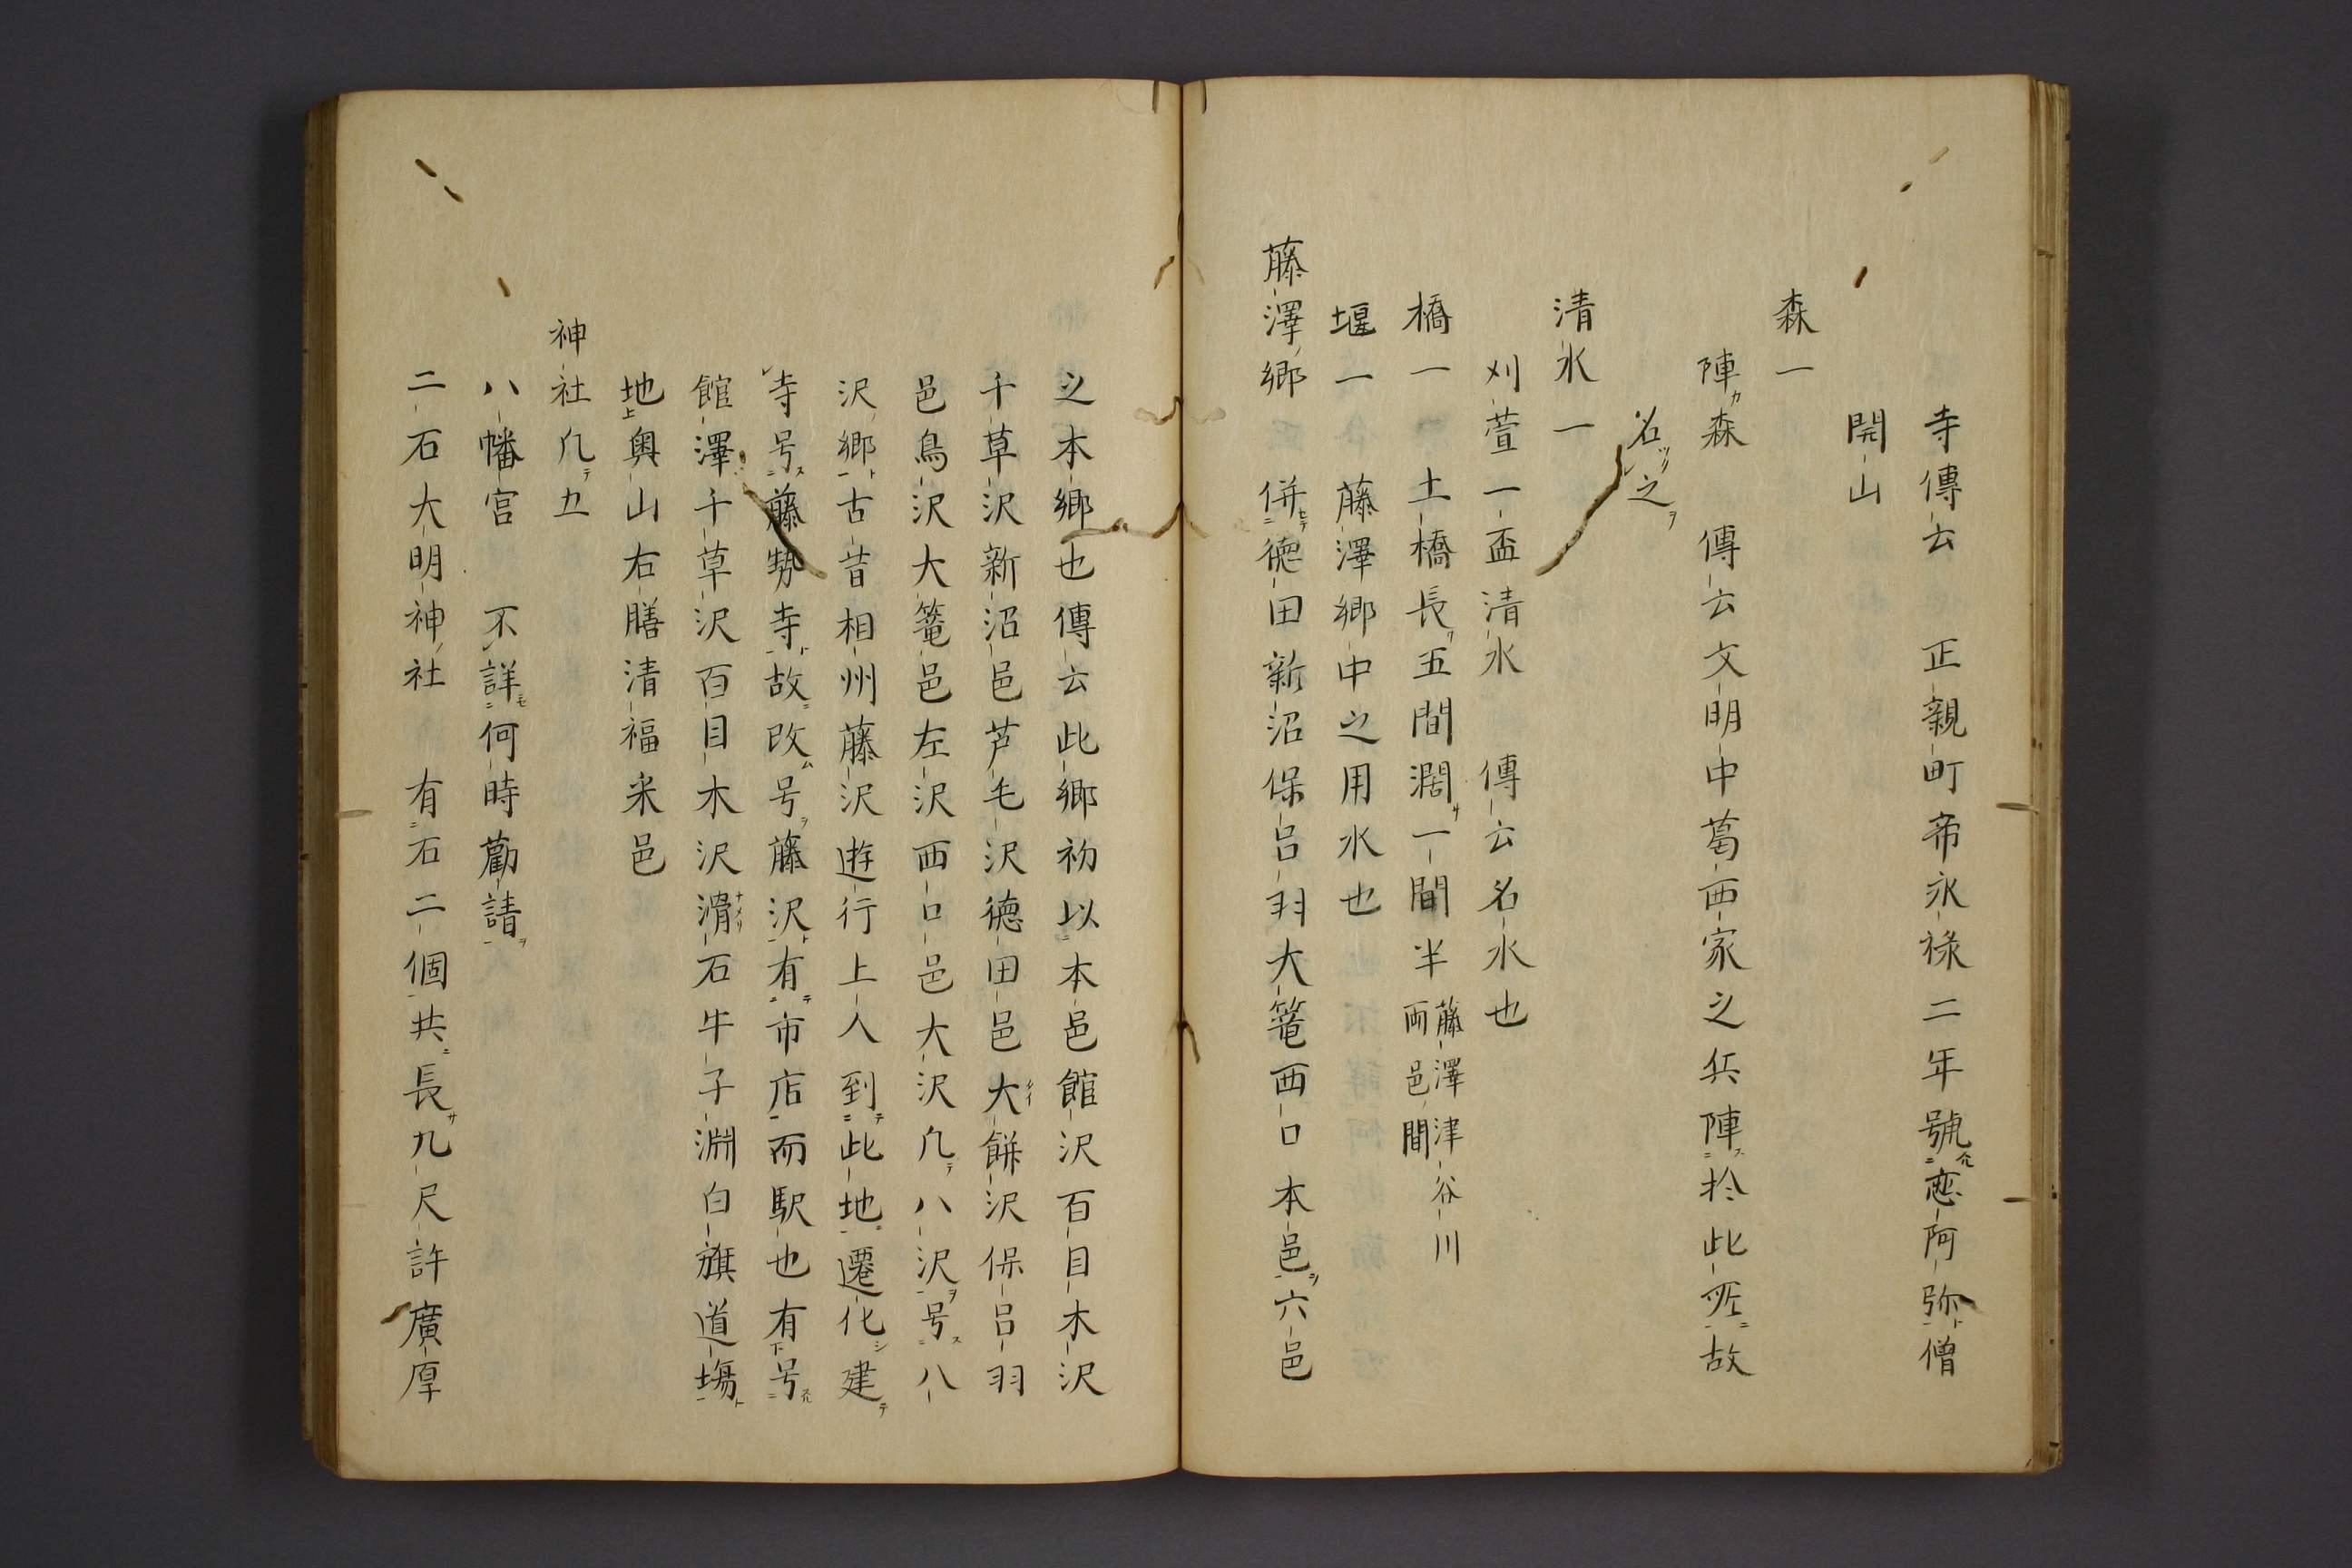 寺傳云　正親町帝永禄二年號恋阿弥僧
開山
森一
陣森　傳云文明中葛西家之兵陣於此所故
名之
清水一
刈萱一盃清水　傳云名水也
橋一　土橋長五間濶一間半藤澤津谷川両邑間
堰一　藤澤郷中之用水也
藤澤郷　併徳田新沼保呂羽大篭西口本邑六邑
之本郷也傳云此郷初以本邑館沢百目木沢
千草沢新沼邑芦毛沢徳田邑大餅沢保呂羽
邑鳥沢大篭邑左沢西口邑大沢凡八沢号八
沢郷古昔相州藤沢遊行上人到此地遷化建
寺号藤勢寺故改号藤沢有市店而駅也有号
館澤千草沢百目木沢滑石牛子淵白旗道塲
地奥山右膳清福来邑
神社凡五
八幡宮　不詳何時勸請
二石大明神社　有石二個共長九尺許廣厚